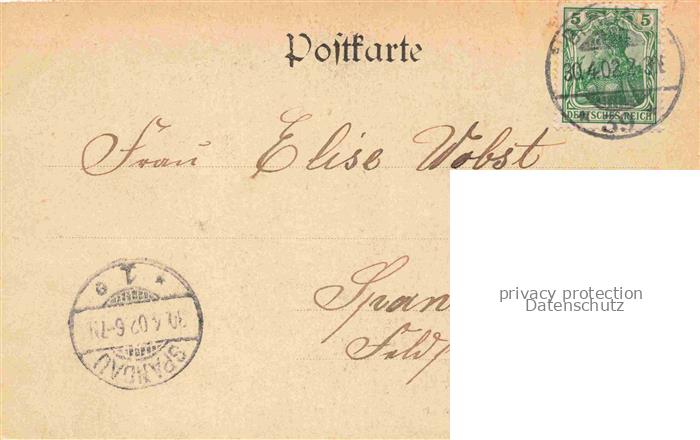 Postkarte
5 5
30.4.02.7-8N
DEUTSCHES REICH
39
Frau Elise Wobst
privacy protection
Datenschutz
Span
Feld
1
30.4.02.6-7N
SPANDAU